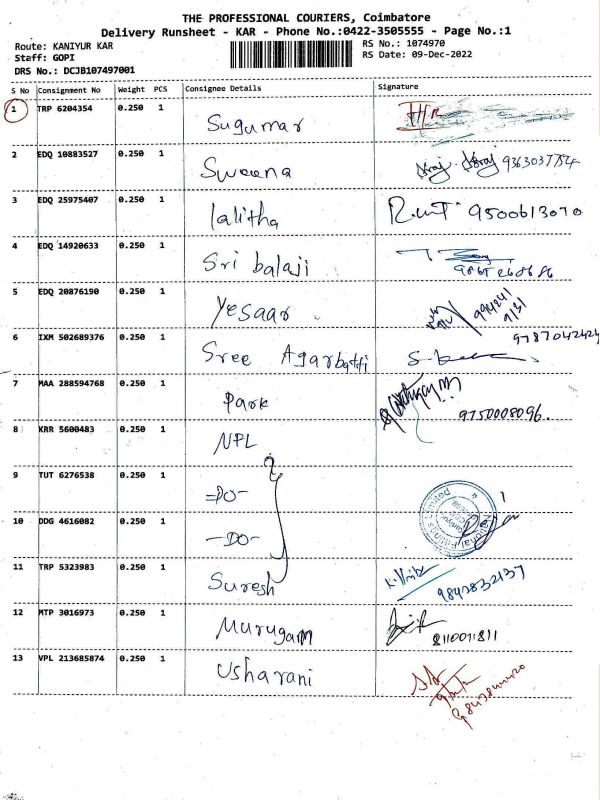 THE PROFESSIONAL COURIERS, Coimbatore
Delivery Runsheet - KAR - Phone No.:0422-3505555 - Page No.:1
Route: KANIYUR KAR
RS No.: 1074970
Staff: GOPI
RS Date: 09-Dec-2022
DRS No.: DCJB107497001
S No Consignment No Weight PCS Consignee Details Signature
1 TRP 6204354 0.250 1 Sugumar
2 EDQ 10883527 0.250 1 Sweena
3 EDQ 25975407 0.250 1 lalitha 9500613070
4 EDQ 14920633 0.250 1 Sri balaji
5 EDQ 20876190 0.250 1 Yesaar
6 IXM 502689376 0.250 1 Sree Agarbatti 9787042424
7 MAA 288594768 0.250 1 Park 9750008096.
8 KRR 5600483 0.250 1 NPL
9 TUT 6276538 0.250 1 =DO-
10 DDG 4616082 0.250 1 -DO-
11 TRP 5323983 0.250 1 Suresh 9843832137
12 MTP 3016973 0.250 1 Murugam 8110011811
13 VPL 213685874 0.250 1 Usharani